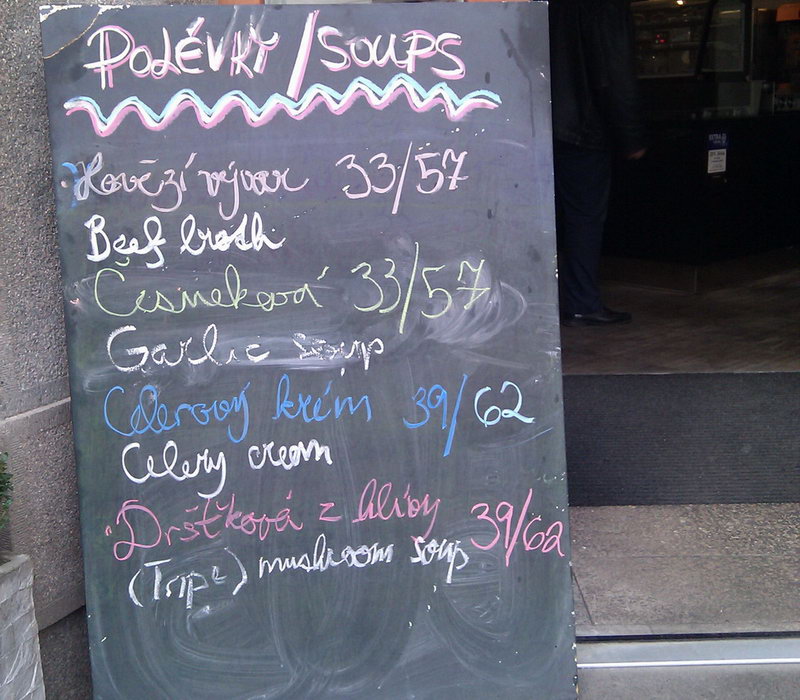 POLÉVKY/SOUPS
Hovězí vývar 33/57
Beef broth
Česneková 33/57
Garlic soup
Celerový krém 39/62
Celery cream
"Dršťková z hlívy 39/62
(Tripe) mushroom soup
EXTRA